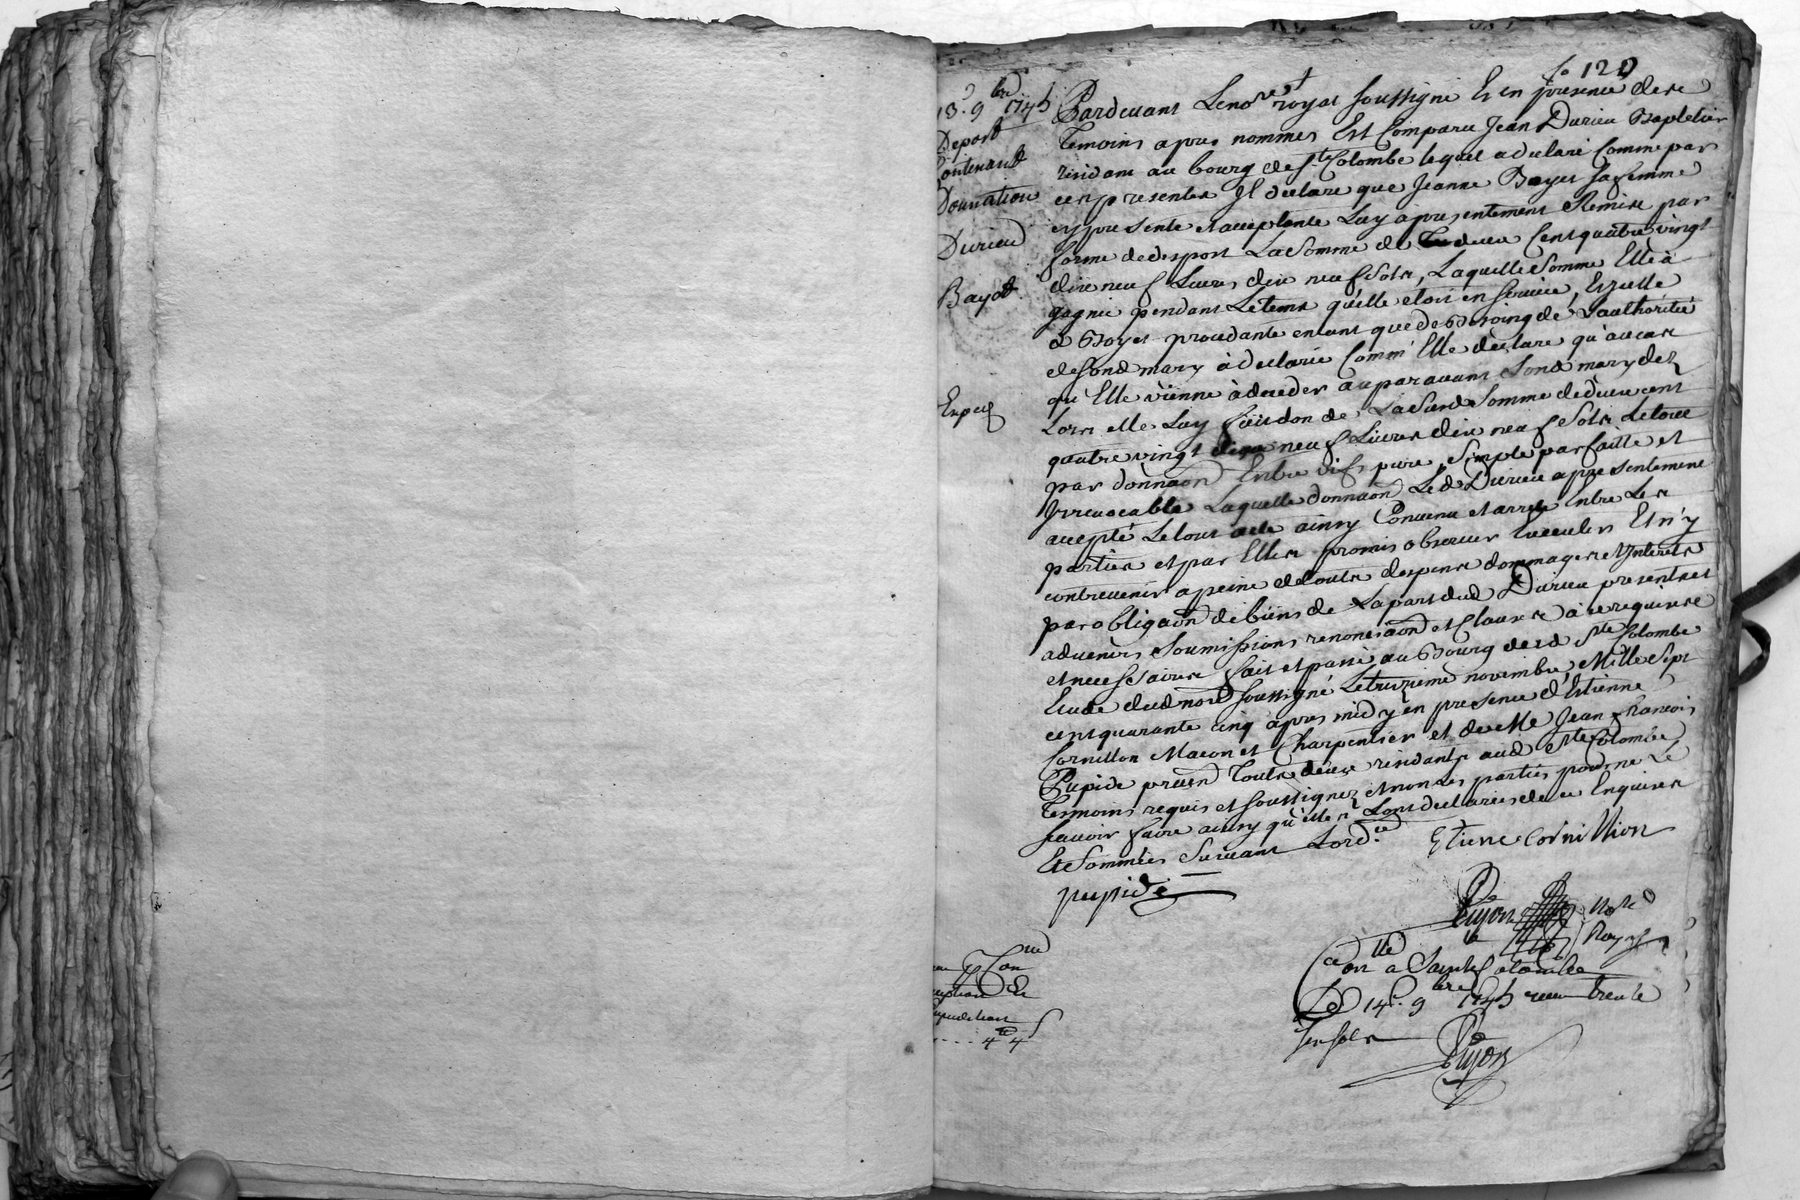 fo 120
13e 9bre 1745
Depost
Contenand
Donnation
Durieu
Bayod
Exped
Pardevant Le nore royal soussigné Et en presence de se
Temoins apres nommés Est Comparu Jean Durieu
residant au bourg de Ste Colombe lequel a declaré Comme par
ces presentes Il declare que Jeanne Bayet sa femme
cy presente et acceptante Luy à presentement Remise par
forme de depost La Somme de deux Cent quatre vingt
dix neuf Livres dix neuf Sols, Laquelle Somme Elle à
gagnée pendant Le tems qu'elle etoit en service, Et icelle
Bayet procedante entant que de Besoing de L'authorité
de sond mary à declaré Comm' Elle declare qu'au cas
qu'Elle vienne à deceder auparavant Sond mary dez
Lors elle Luy fait don de Lasusd Somme de deux cent
quatre vingt dix neuf Livres dix neuf Sols Le tout
par donnaon Entre vifs pure, Simple parfaitte et
Irrevocable Laquelle donnaon Led Durieu a presentement
accepté Le tout ainsy Convenu et arreté Entre Les
parties et par Elles promis observer Executer Et n'y
contrevenir a peine de touts despens dommages et Interets
par obligaon de biens de La part dud Durieu presents et
advenirs Soumissions renonciaon et Clauses à ce requises
et necessaires fait et passé au Bourg dud Ste Colombe
Etude dud nore soussigné Le treizieme novembre Mille Sept
cent quarante cinq apres midy en presence d'Estienne
Cornillon Macon et Charpentier et de Me Jean francois
Pupide pratn Touts deux residants aud Ste Colombe
Temoins requis et soussignez et non Les parties pour ne Le
scavoir faire ainsy qu'elles L'ont declarés de ce Enquises
Et Sommées Suivant Lord.ce
Etiene cornillion
pupide
Pujon Nore
Royal
Con
4 4s
Conlle a Sainte Colombe
Le 14e 9bre 1745 receu trente
six sols
Pujon